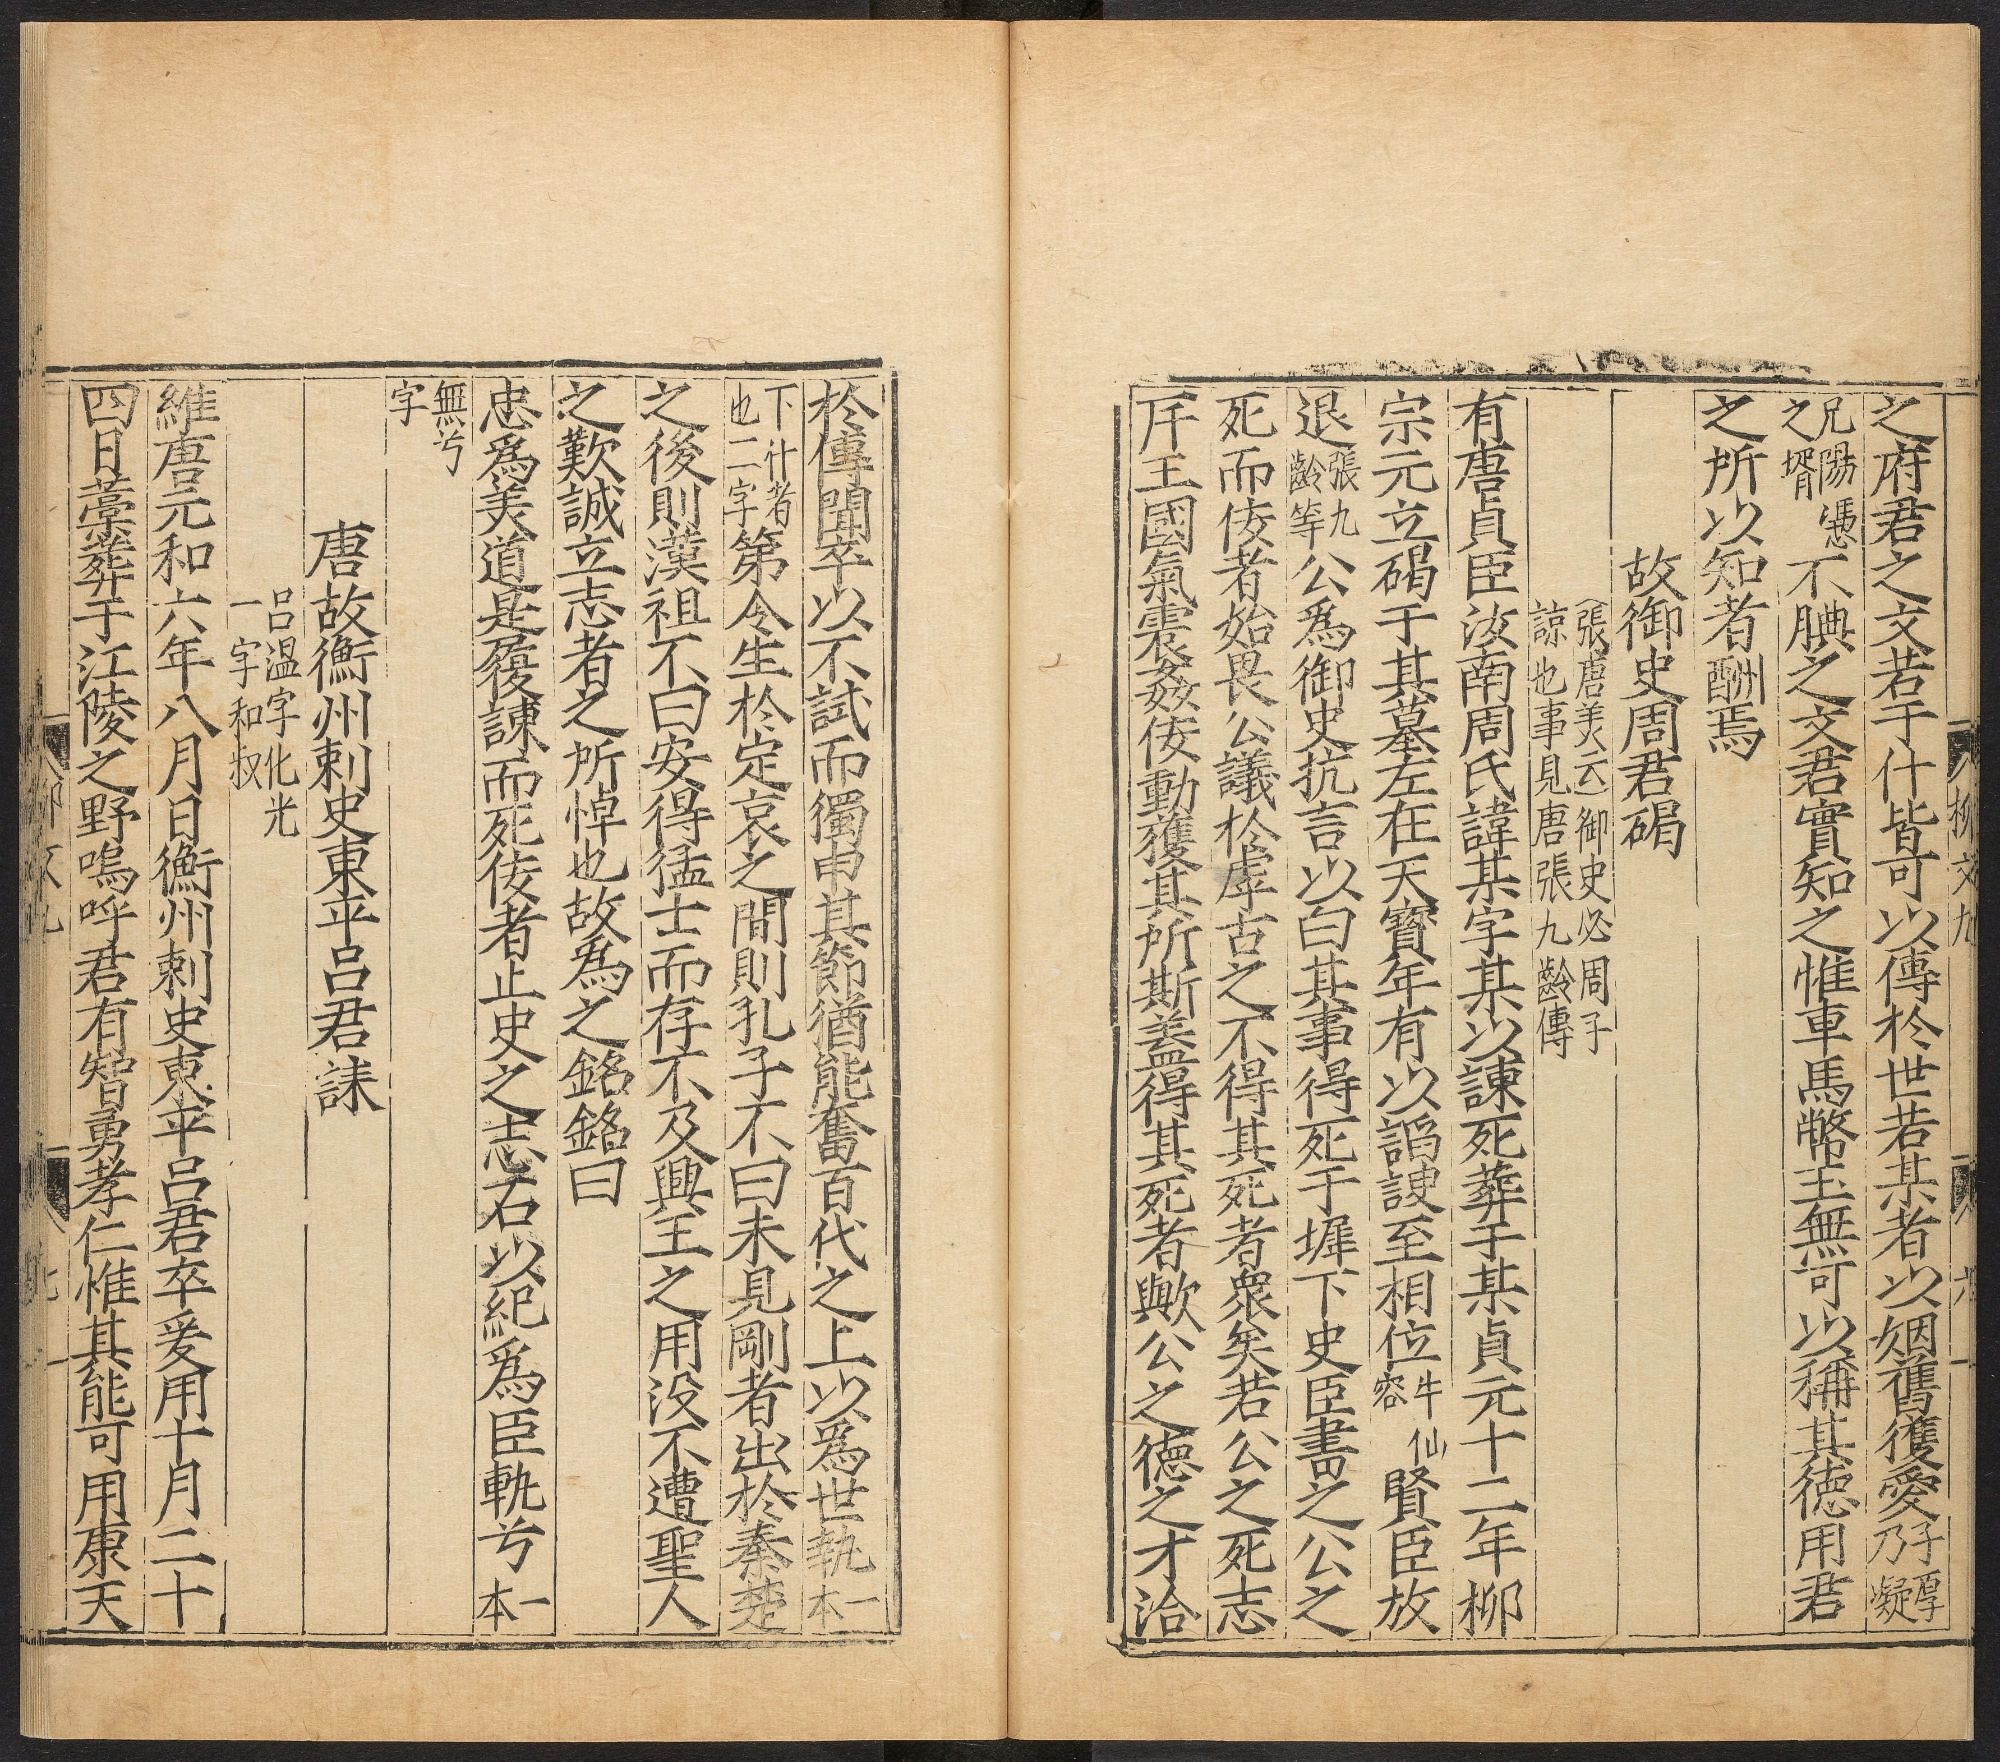 之府君之文若干什皆可以傳於世若某者以姻舊獲愛子厚乃凝
兄陽憑之壻不腆之文君實知之惟車馬幣玉無可以稱其德用君
之所以知者酬焉
故御史周君碣
張唐美云御史必周子
諒也事見唐張九齡傳
有唐貞臣汝南周氏諱某字某以諫死葬于某貞元十二年柳
宗元立碣于其墓左在天寶年有以諂諛至相位牛仙客賢臣放
退張九齡等公爲御史抗言以白其事得死于墀下史臣書之公之
死而佞者始畏公議於虖古之不得其死者衆矣若公之死志
斥王國氣震姦佞動獲其所斯盖得其死者歟公之德之才洽
於傳聞卒以不試而獨申其節猶能奮百代之上以爲世軌一本
下什者也二字第令生於定哀之間則孔子不曰未見剛者出於秦楚
之後則漢祖不曰安得猛士而存不及興王之用没不遭聖人
之歎誠立志者之所悼也故爲之銘銘曰
忠爲美道是履諫而死佞者止史之志石以紀爲臣軌兮一本
無兮字
唐故衡州刺史東平吕君誄
吕温字化光
一字和叔
維唐元和六年八月日衡州刺史東平吕君卒爰用十月二十
四日藁葬于江陵之野嗚呼君有智勇孝仁惟其能可用康天
柳文九
六